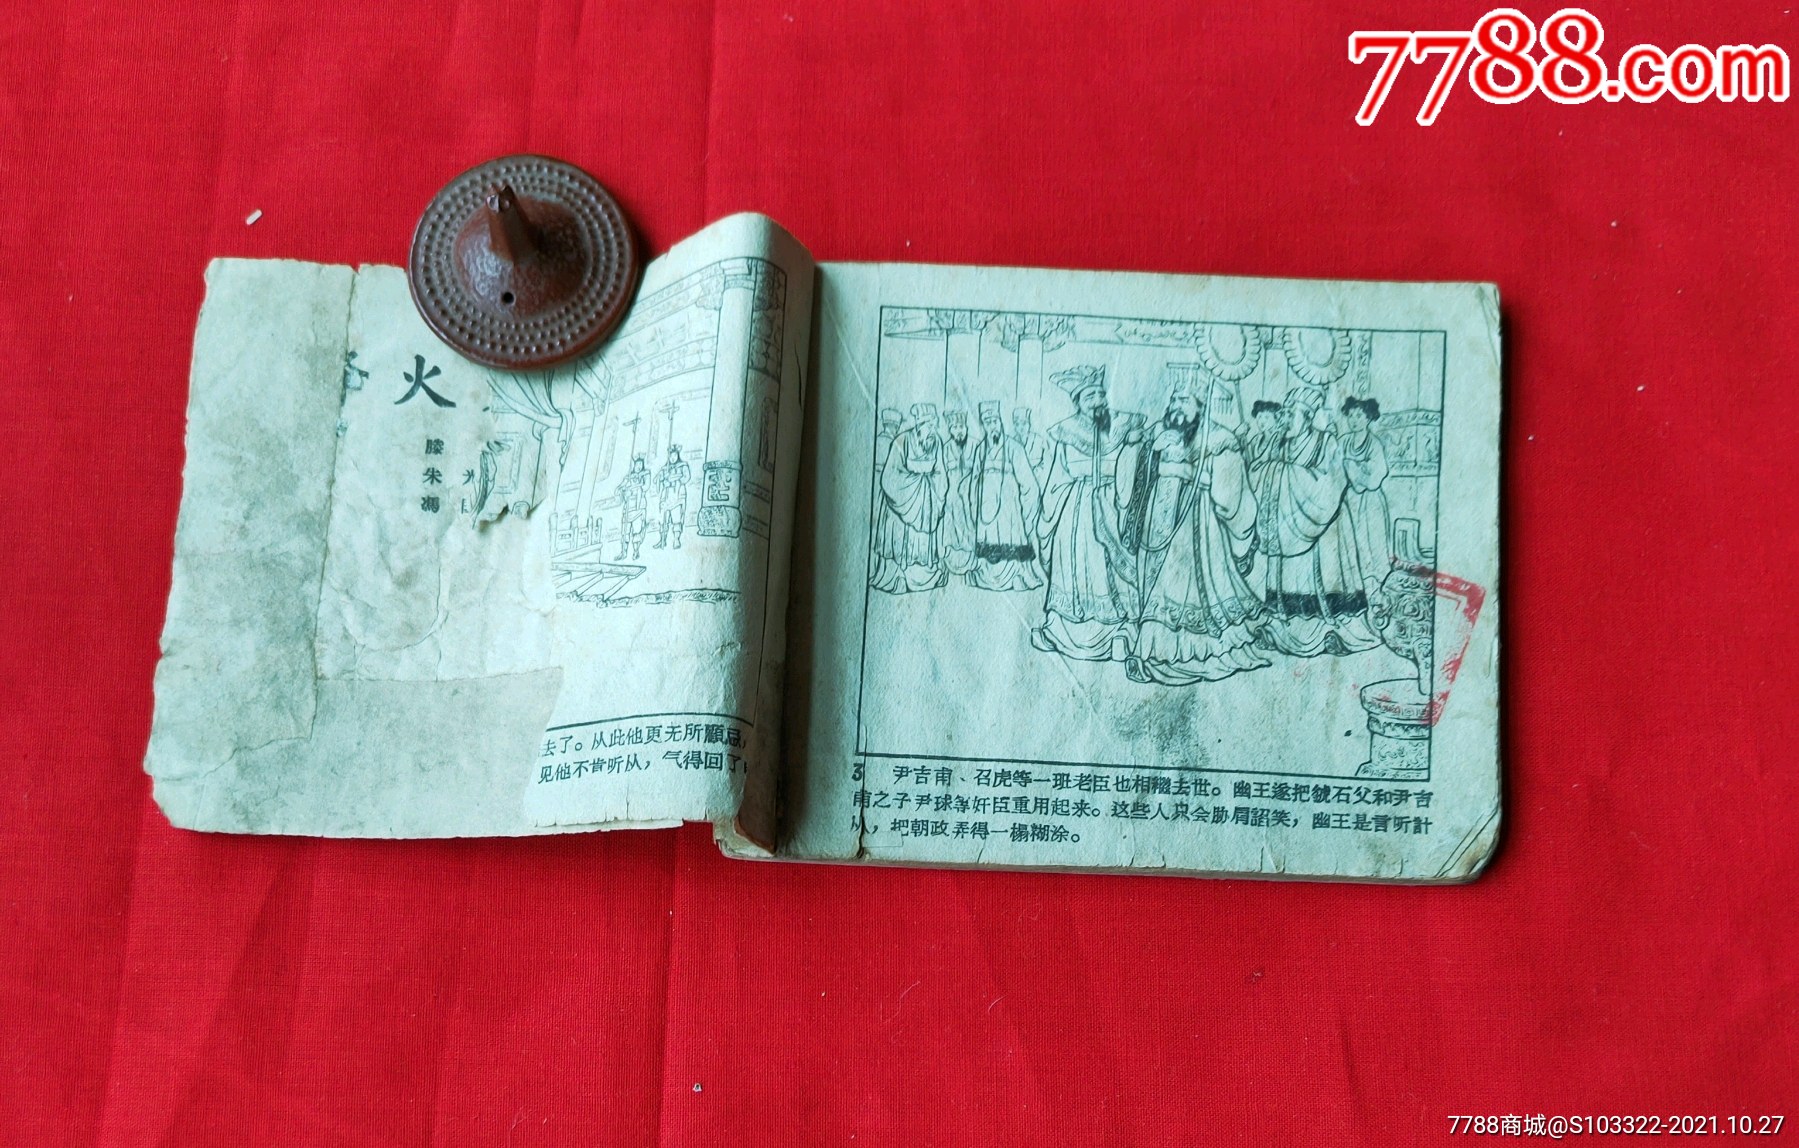 7788.com
火
滕
朱
馮
去了。从此他更无所顧忌，
见他不肯听从，气得回了
3 尹吉甫、召虎等一班老臣也相繼去世。幽王遂把虢石父和尹吉
甫之子尹球等奸臣重用起来。这些人只会胁肩諂笑，幽王是言听計
从，把朝政弄得一榻糊涂。
7788商城@S103322-2021.10.27